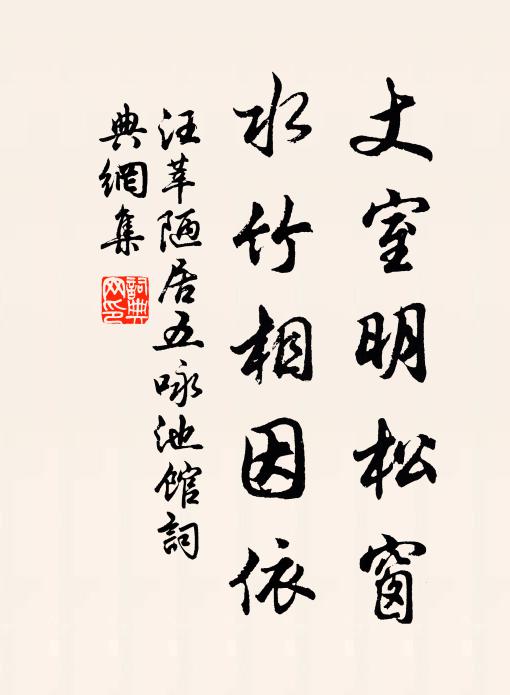 丈室明松窗
水竹相因依
汪莘陋居五咏池館詞
典網集
詞典网印